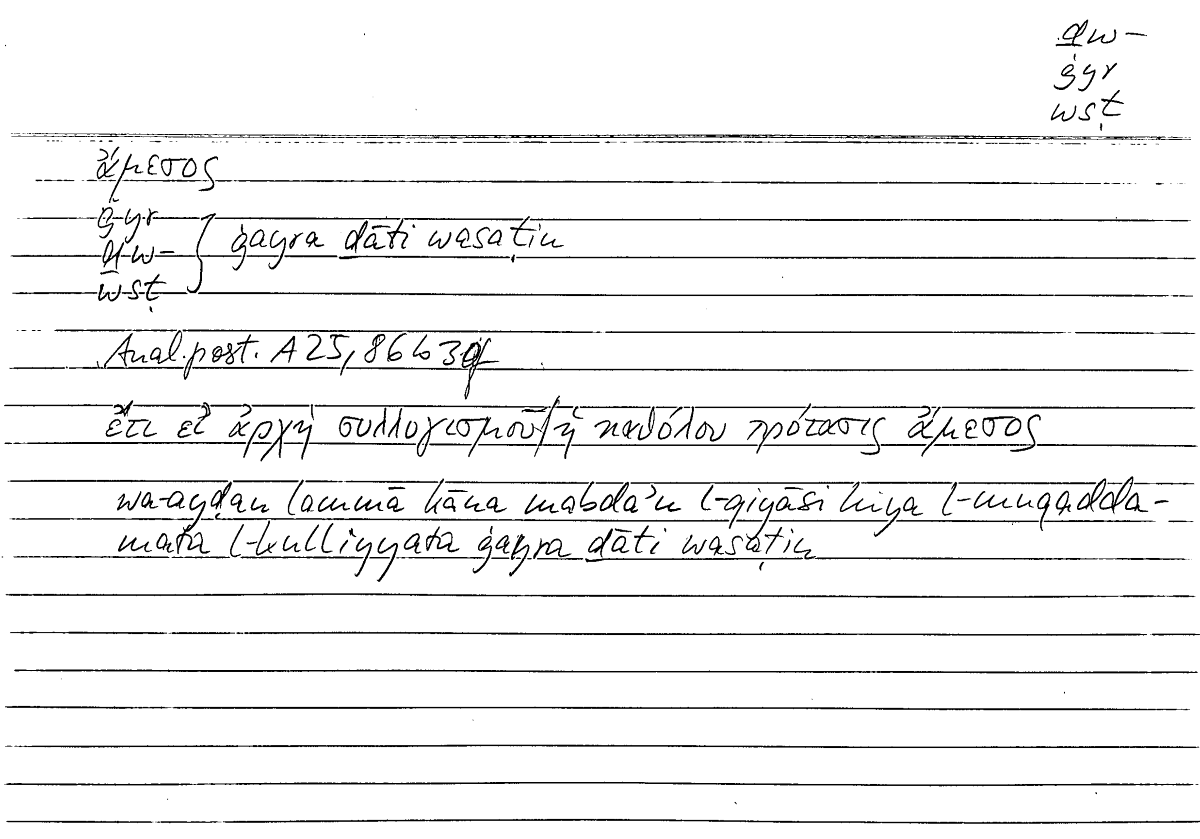 ḏw-
ġyr
wsṭ
ἄμεσος
ġyr
ḏw- } ġayra ḏāti wasaṭin
wsṭ
Anal.post. A 25, 86b30
ἔτι εἰ ἀρχὴ συλλογισμοῦ/ἡ καθόλου πρότασις ἄμεσος
wa-ayḍan lammā kāna mabda'u l-qiyāsi hiya l-muqadda-
mata l-kulliyyata ġayra ḏāti wasaṭin